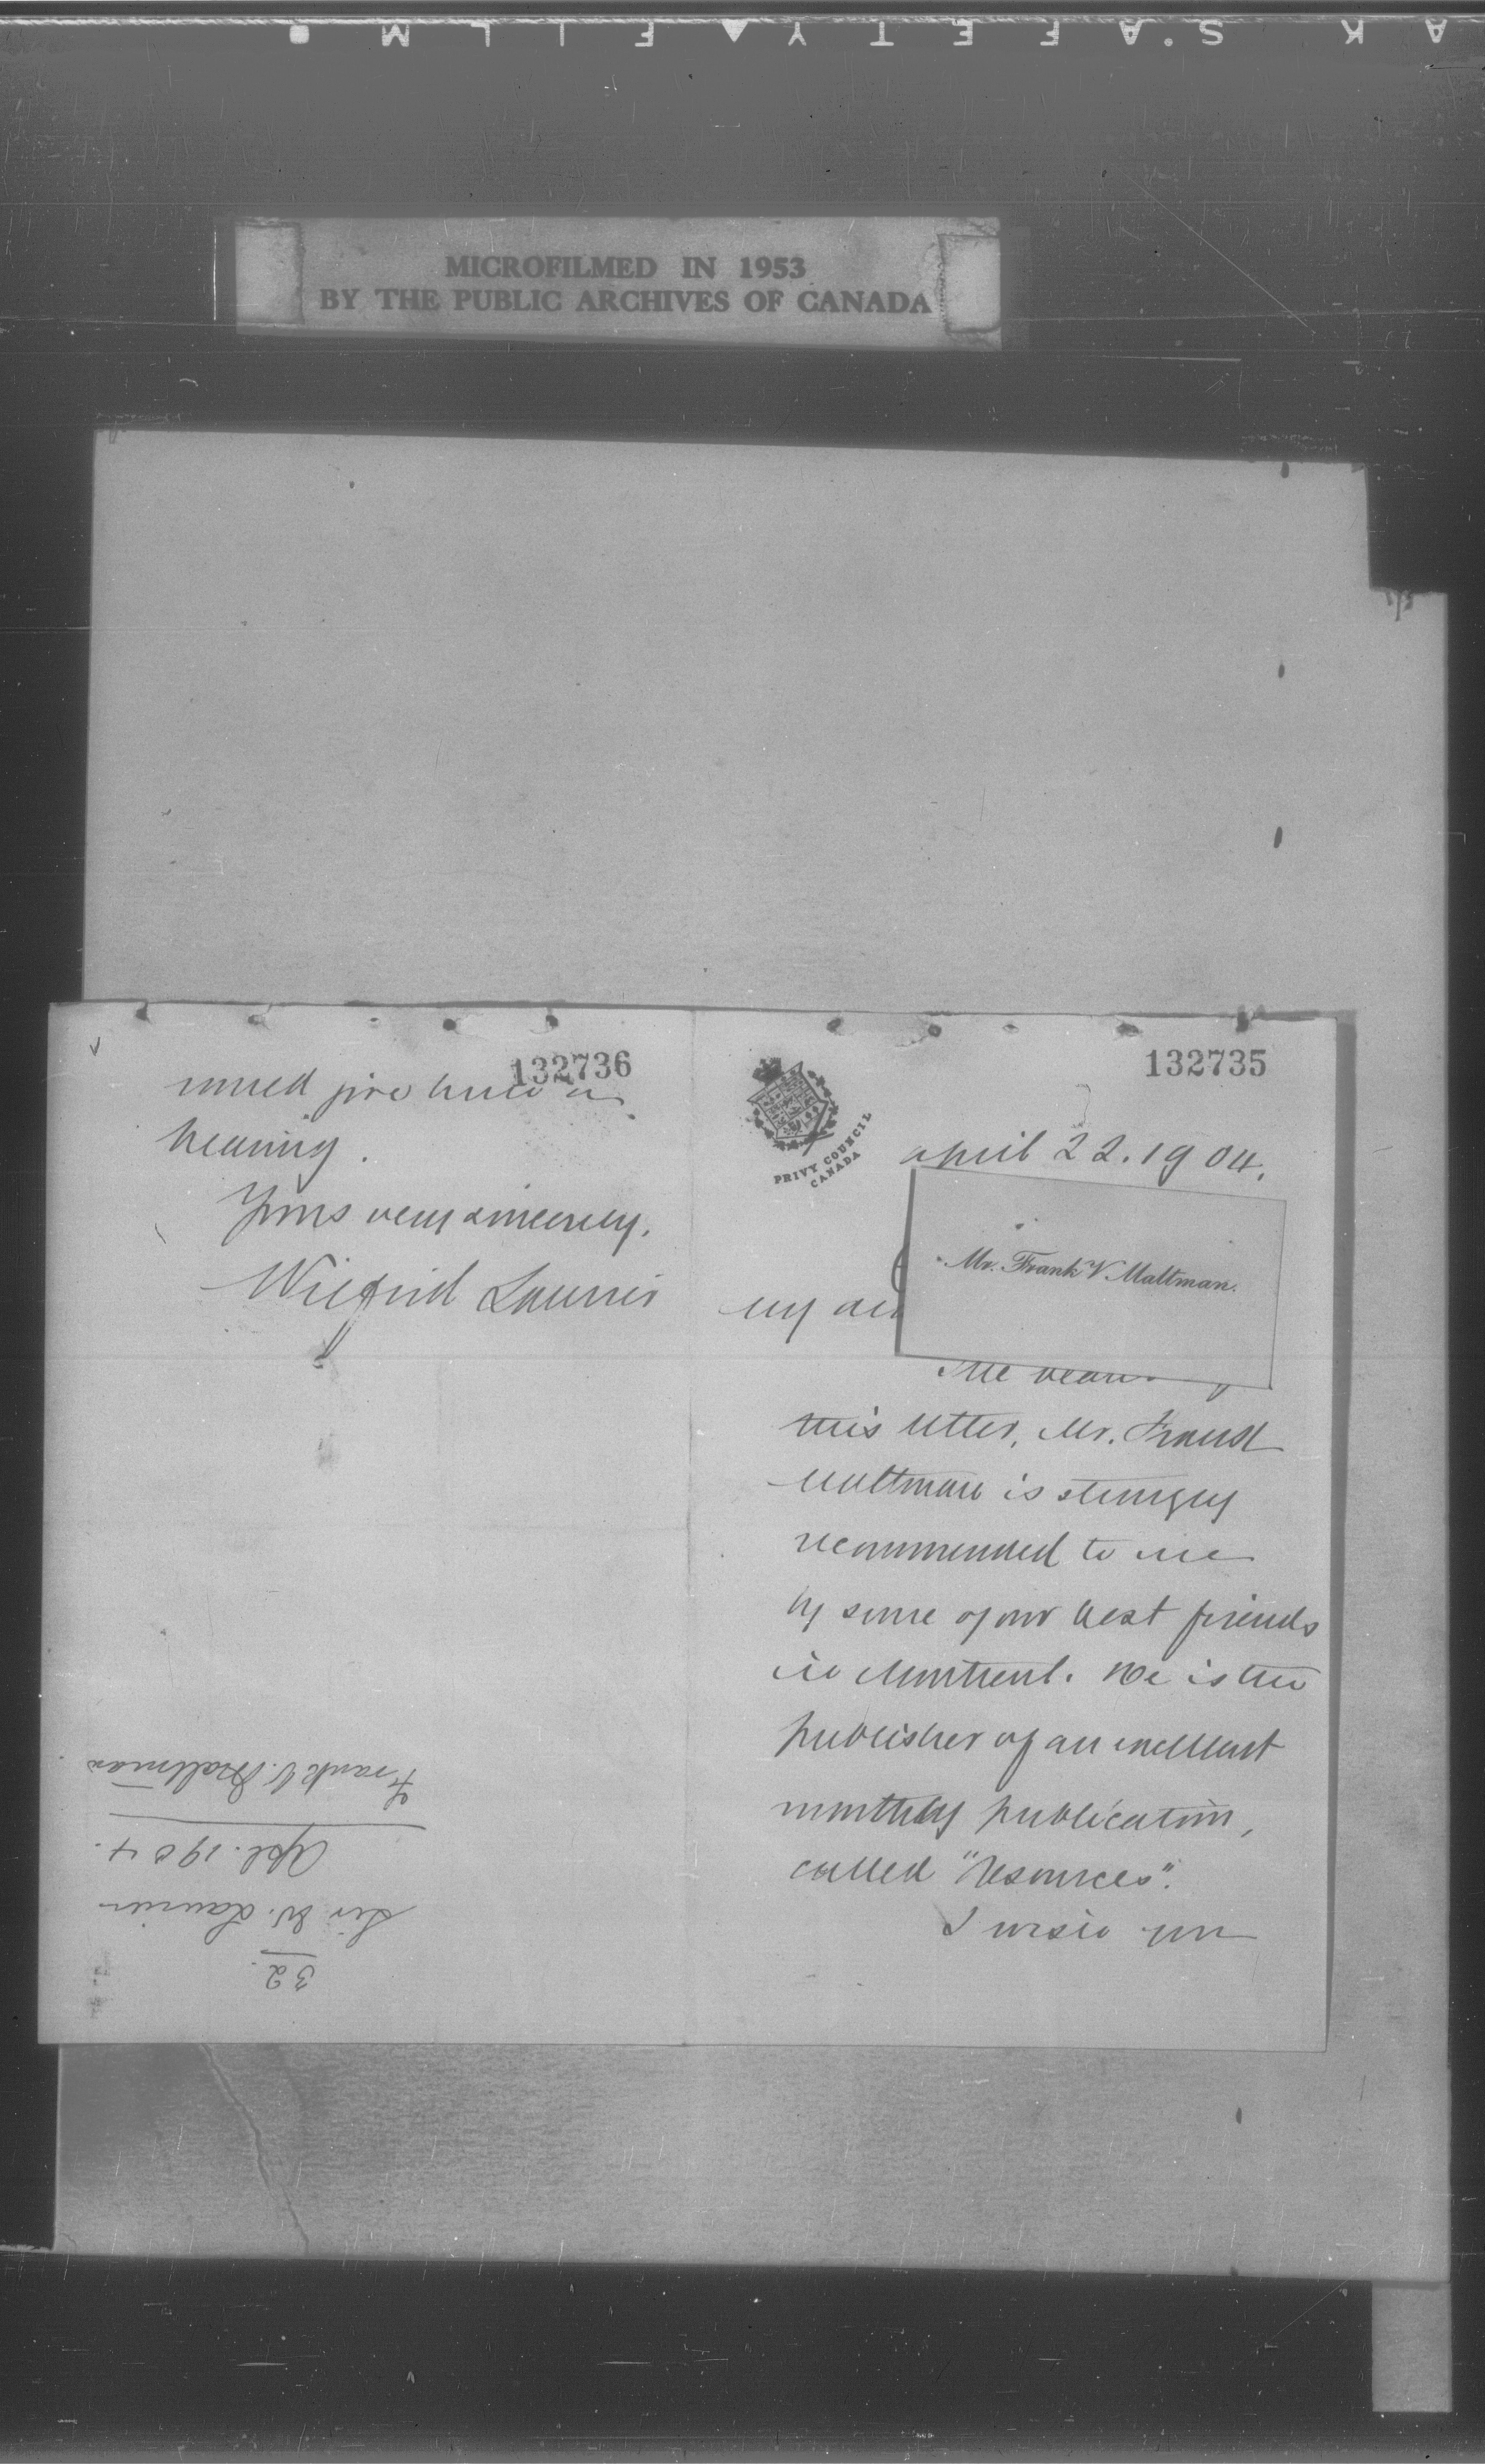 AK SAFETY FILM
MICROFILMED IN 1953
BY THE PUBLIC ARCHIVES OF CANADA
132735
PRIVY COUNCIL
CANADA
April 22. 1904.
Mr. Frank V. Maltman.
My
The bearer
this letter, Mr. Frank
Maltman is strongly
recommended to me
by some of our best friends
in Montreal. He is the
publisher of an excellent
monthly publication,
called "Resources".
I wish you
132736
would give him a
hearing.
Yours very sincerely,
Wilfrid Laurier
32
Sir W. Laurier
Apl. 1904.
Frank V. Maltman